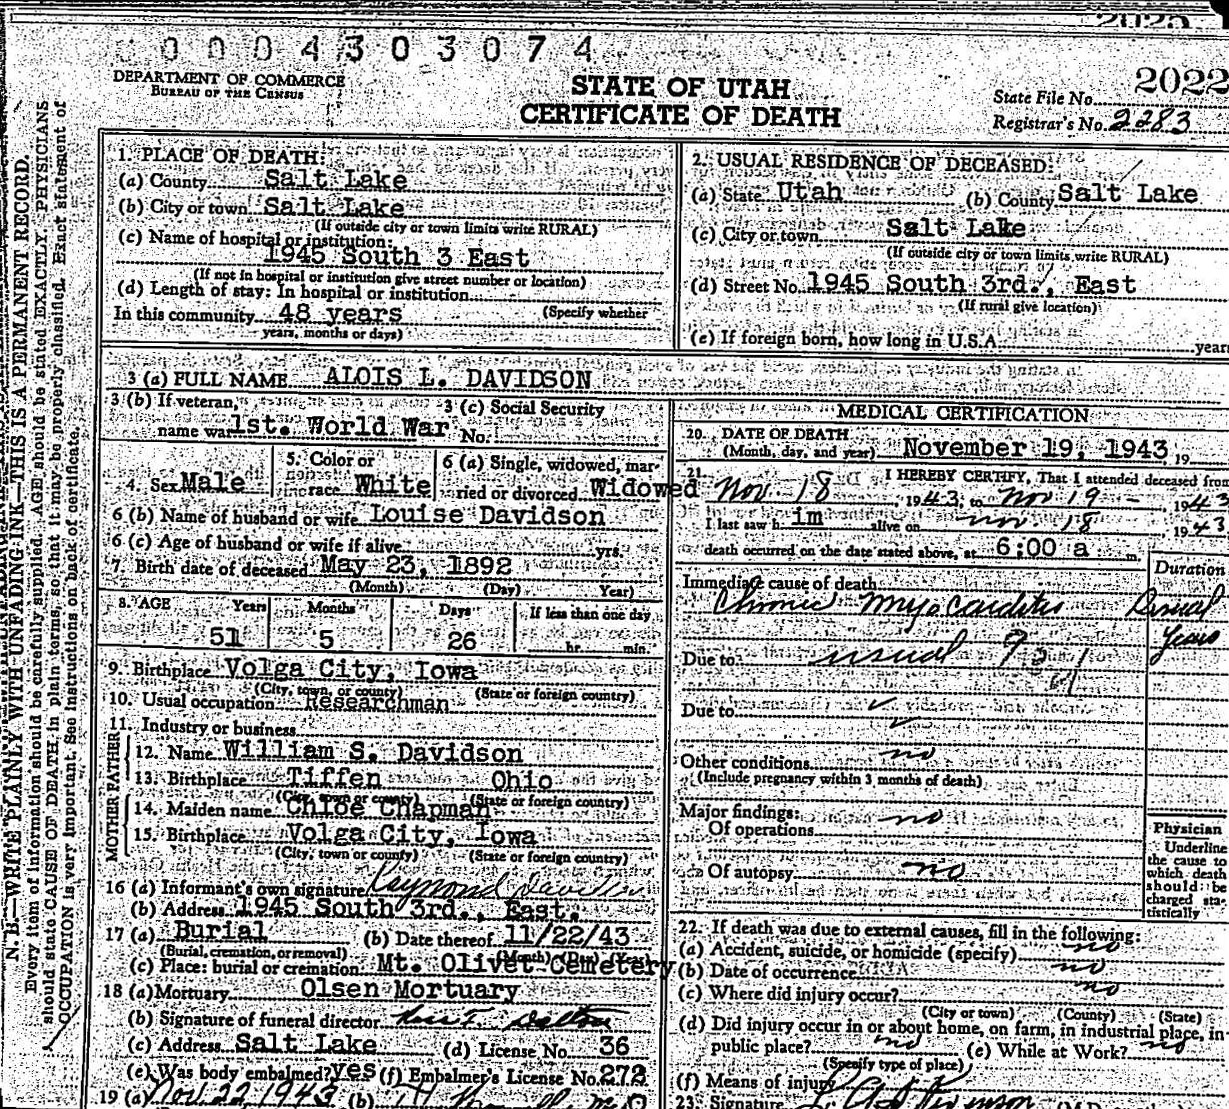 0004303074
DEPARTMENT OF COMMERCE
BUREAU OF THE CENSUS
STATE OF UTAH
CERTIFICATE OF DEATH
2022
State File No.
Registrar's No. 2283
N. B.—WRITE PLAINLY WITH UNFADING INK—THIS IS A PERMANENT RECORD.
Every item of information should be carefully supplied. AGE should be stated EXACTLY. PHYSICIANS
should state CAUSE OF DEATH in plain terms, so that it may be properly classified. Exact statement of
OCCUPATION is very important. See instructions on back of certificate.
1. PLACE OF DEATH:
(a) County Salt Lake
(b) City or town Salt Lake
(If outside city or town limits write RURAL)
(c) Name of hospital or institution:
1945 South 3 East
(If not in hospital or institution give street number or location)
(d) Length of stay: In hospital or institution
In this community 48 years (Specify whether
years, months or days)
2. USUAL RESIDENCE OF DECEASED:
(a) State Utah (b) County Salt Lake
(c) City or town Salt Lake
(If outside city or town limits write RURAL)
(d) Street No. 1945 South 3rd., East
(If rural give location)
(e) If foreign born, how long in U.S.A. years
3 (a) FULL NAME ALOIS L. DAVIDSON
3 (b) If veteran, 3 (c) Social Security
name war 1st. World War No.
4. Sex Male 5. Color or race White 6 (a) Single, widowed, married or divorced Widowed
6 (b) Name of husband or wife Louise Davidson
6 (c) Age of husband or wife if alive yrs.
7. Birth date of deceased May 23, 1892
(Month) (Day) Year)
8. AGE Years Months Days If less than one day
51 5 26 hr. min.
9. Birthplace Volga City, Iowa
(City, town, or county) (State or foreign country)
10. Usual occupation Researchman
11. Industry or business
FATHER
12. Name William S. Davidson
13. Birthplace Tiffen Ohio
(City, town or county) (State or foreign country)
MOTHER
14. Maiden name Chloe Chapman
15. Birthplace Volga City, Iowa
(City, town or county) (State or foreign country)
16 (a) Informant's own signature Raymond Davidson
(b) Address 1945 South 3rd., East.
17 (a) Burial (b) Date thereof 11/22/43
(Burial, cremation, or removal) (Month) (Day) (Year)
(c) Place: burial or cremation: Mt. Olivet Cemetery
18 (a) Mortuary Olsen Mortuary
(b) Signature of funeral director
(c) Address Salt Lake (d) License No. 36
(e) Was body embalmed? yes (f) Embalmer's License No. 272
19 (a) Nov 22 1943 (b)
MEDICAL CERTIFICATION
20. DATE OF DEATH
(Month, day, and year) November 19, 1943, 19
21. I HEREBY CERTIFY, That I attended deceased from
Nov. 18, 1943, to Nov 19, 1943
I last saw h im alive on nov. 18, 1943
death occurred on the date stated above, at 6:00 a m.
Duration
Immediate cause of death
Chronic Myocarditis
Years
Due to usual
Due to
Other conditions no
(Include pregnancy within 3 months of death)
Major findings:
Of operations no
Of autopsy no
Physician
Underline
the cause to
which death
should be
charged sta-
tistically
22. If death was due to external causes, fill in the following:
(a) Accident, suicide, or homicide (specify) no
(b) Date of occurrence no
(c) Where did injury occur? no
(City or town) (County) (State)
(d) Did injury occur in or about home, on farm, in industrial place, in
public place? no (e) While at Work? no
(Specify type of place)
(f) Means of injury
23. Signature